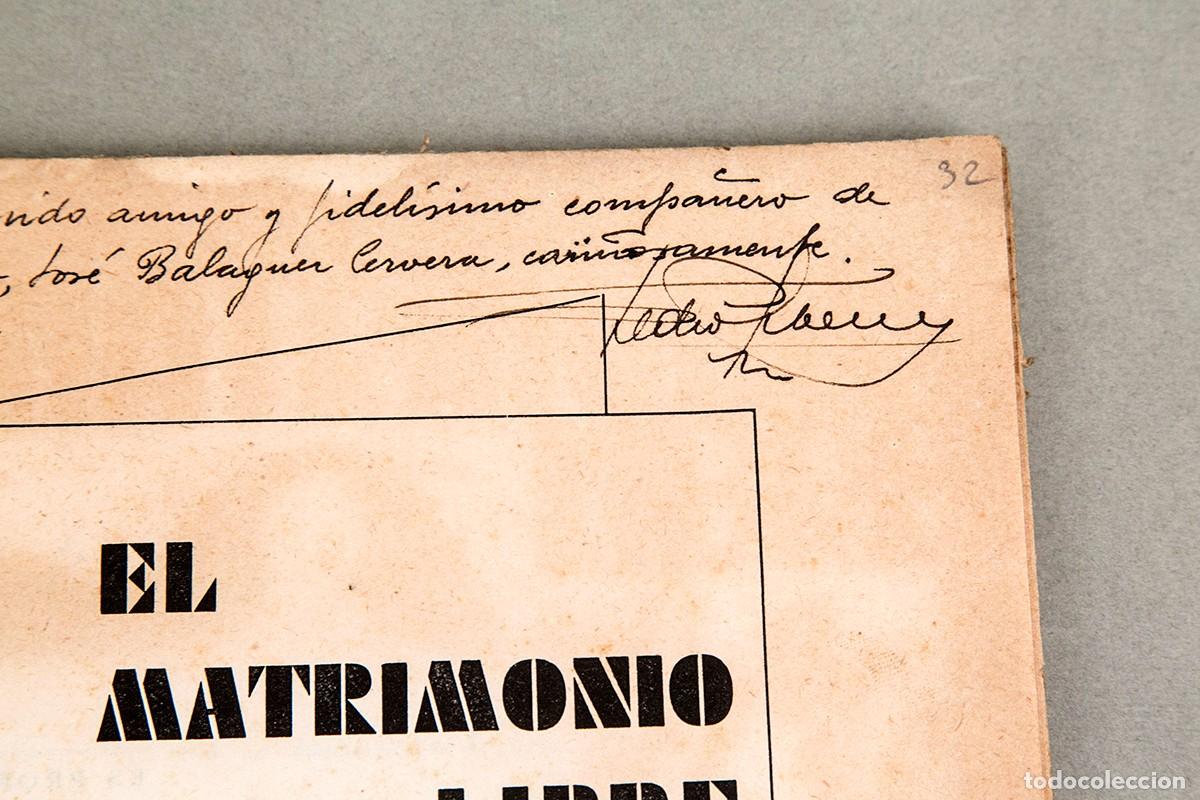 32
nido amigo y fidelísimo compañero de
, José Balaguer Cervera, cariñosamente.
Pedro
EL
MATRIMONIO
LIBRE
todocoleccion